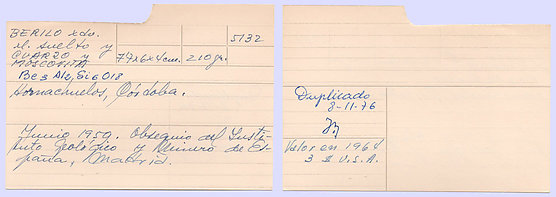 BERILO xdo.
xl. suelto y
CUARZO y
MOSCOVITA
7'4x6x4cm.
210gr.
5132
Be3 Al2, Si6 O18
Hornachuelos, Córdoba.
Junio 1950. Obsequio del Insti-
tuto Geológico y Minero de Es-
paña, Madrid.
Duplicado
3-11-76
Valor en 1964
3 $ U.S.A.